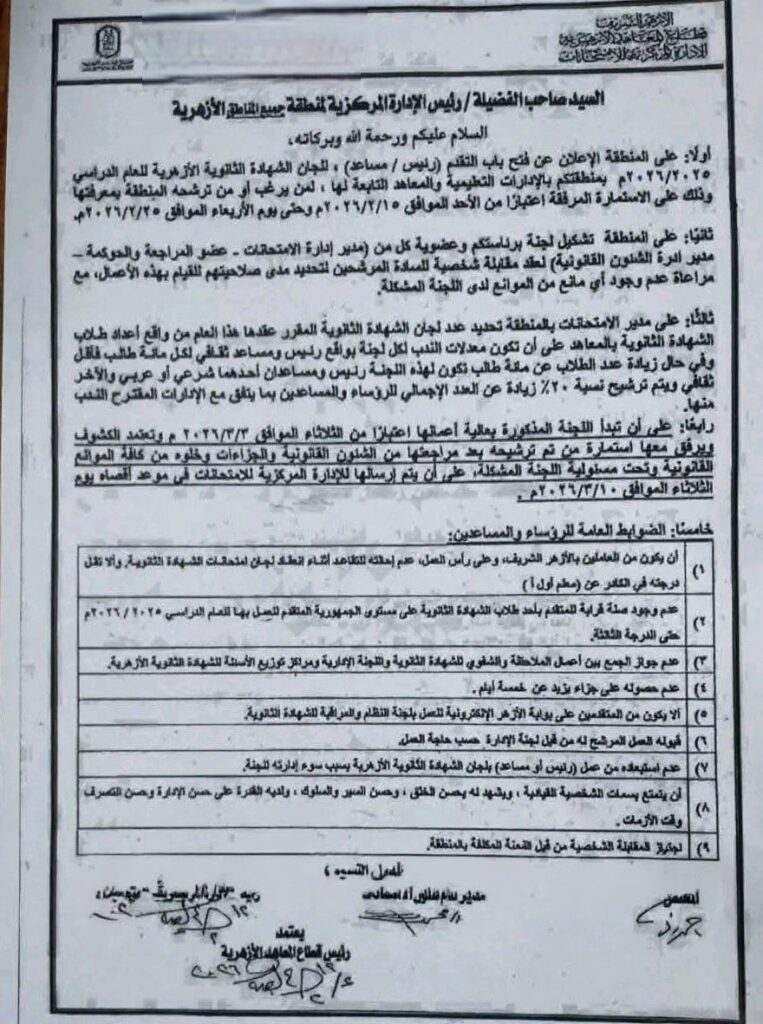 الأزهر الشريف
قطاع المعاهد الأزهرية
الإدارة المركزية للامتحانات
السيد صاحب الفضيلة / رئيس الإدارة المركزية لمنطقة جميع المناطق الأزهرية
السلام عليكم ورحمة الله وبركاته،
أولًا: على المنطقة الإعلان عن فتح باب التقدم (رئيس / مساعد) ، للجان الشهادة الثانوية الأزهرية للعام الدراسي
٢٠٢٦/٢٠٢٥م بمنطقتكم بالإدارات التعليمية والمعاهد التابعة لها ، لمن يرغب أو من ترشحه المنطقة بمعرفتها
وذلك على الاستمارة المرفقة اعتبارًا من الأحد الموافق ٢٠٢٦/٢/١٥م وحتى يوم الأربعاء الموافق ٢٠٢٦/٢/٢٥م.
ثانيًا: على المنطقة تشكيل لجنة برئاستكم وعضوية كل من (مدير إدارة الامتحانات - عضو المراجعة والحوكمة -
مدير ادرة الشئون القانونية) لعقد مقابلة شخصية للسادة المرشحين لتحديد مدى صلاحيتهم للقيام بهذه الأعمال، مع
مراعاة عدم وجود أي مانع من الموانع لدى اللجنة المشكلة.
ثالثًا: على مدير الامتحانات بالمنطقة تحديد عدد لجان الشهادة الثانوية المقرر عقدها هذا العام من واقع أعداد طلاب
الشهادة الثانوية بالمعاهد على أن تكون معدلات الندب لكل لجنة بواقع رئيس ومساعد ثقافي لكل مائة طالب فأقل
وفي حال زيادة عدد الطلاب عن مائة طالب تكون لهذه اللجنة رئيس ومساعدان أحدهما شرعي أو عربي والآخر
ثقافي ويتم ترشيح نسبة ٢٠٪ زيادة عن العدد الإجمالي للرؤساء والمساعدين بما يتفق مع الإدارات المقترح الندب
منها.
رابعًا: على أن تبدأ اللجنة المذكورة بعالية أعمالها اعتبارًا من الثلاثاء الموافق ٢٠٢٦/٣/٣ م وتعتمد الكشوف
ويرفق معها استمارة من تم ترشيحه بعد مراجعتها من الشئون القانونية والجزاءات وخلوه من كافة الموانع
القانونية وتحت مسئولية اللجنة المشكلة، على أن يتم إرسالها للإدارة المركزية للامتحانات في موعد أقصاه يوم
الثلاثاء الموافق ٢٠٢٦/٣/١٠م .
خامسًا: الضوابط العامة للرؤساء والمساعدين:
١) أن يكون من العاملين بالأزهر الشريف، وعلى رأس العمل، عدم إحالته للتقاعد أثناء انعقاد لجان امتحانات الشهادة الثانوية، وألا تقل
درجته في الكادر عن (معلم أول أ )
٢) عدم وجود صلة قرابة للمتقدم بأحد طلاب الشهادة الثانوية على مستوى الجمهورية المتقدم للعمل بها للعام الدراسي ٢٠٢٥ / ٢٠٢٦م
حتى الدرجة الثالثة.
٣) عدم جواز الجمع بين أعمال الملاحظة والشفوي للشهادة الثانوية واللجنة الإدارية ومراكز توزيع الأسئلة للشهادة الثانوية الأزهرية.
٤) عدم حصوله على جزاء يزيد عن خمسة أيام .
٥) ألا يكون من المتقدمين على بوابة الأزهر الإلكترونية للعمل بلجنة النظام والمراقبة للشهادة الثانوية.
٦) قبوله العمل المرشح له من قبل لجنة الإدارة حسب حاجة العمل.
٧) عدم استبعاده من عمل (رئيس أو مساعد) بلجان الشهادة الثانوية الأزهرية بسبب سوء إدارته للجنة.
٨) أن يتمتع بسمات الشخصية القيادية ، ويشهد له بحسن الخلق ، وحسن السير والسلوك ، ولديه القدرة على حسن الإدارة وحسن التصرف
وقت الأزمات .
٩) اجتياز المقابلة الشخصية من قبل اللجنة المكلفة بالمنطقة.
يعتمد
رئيس قطاع المعاهد الأزهرية